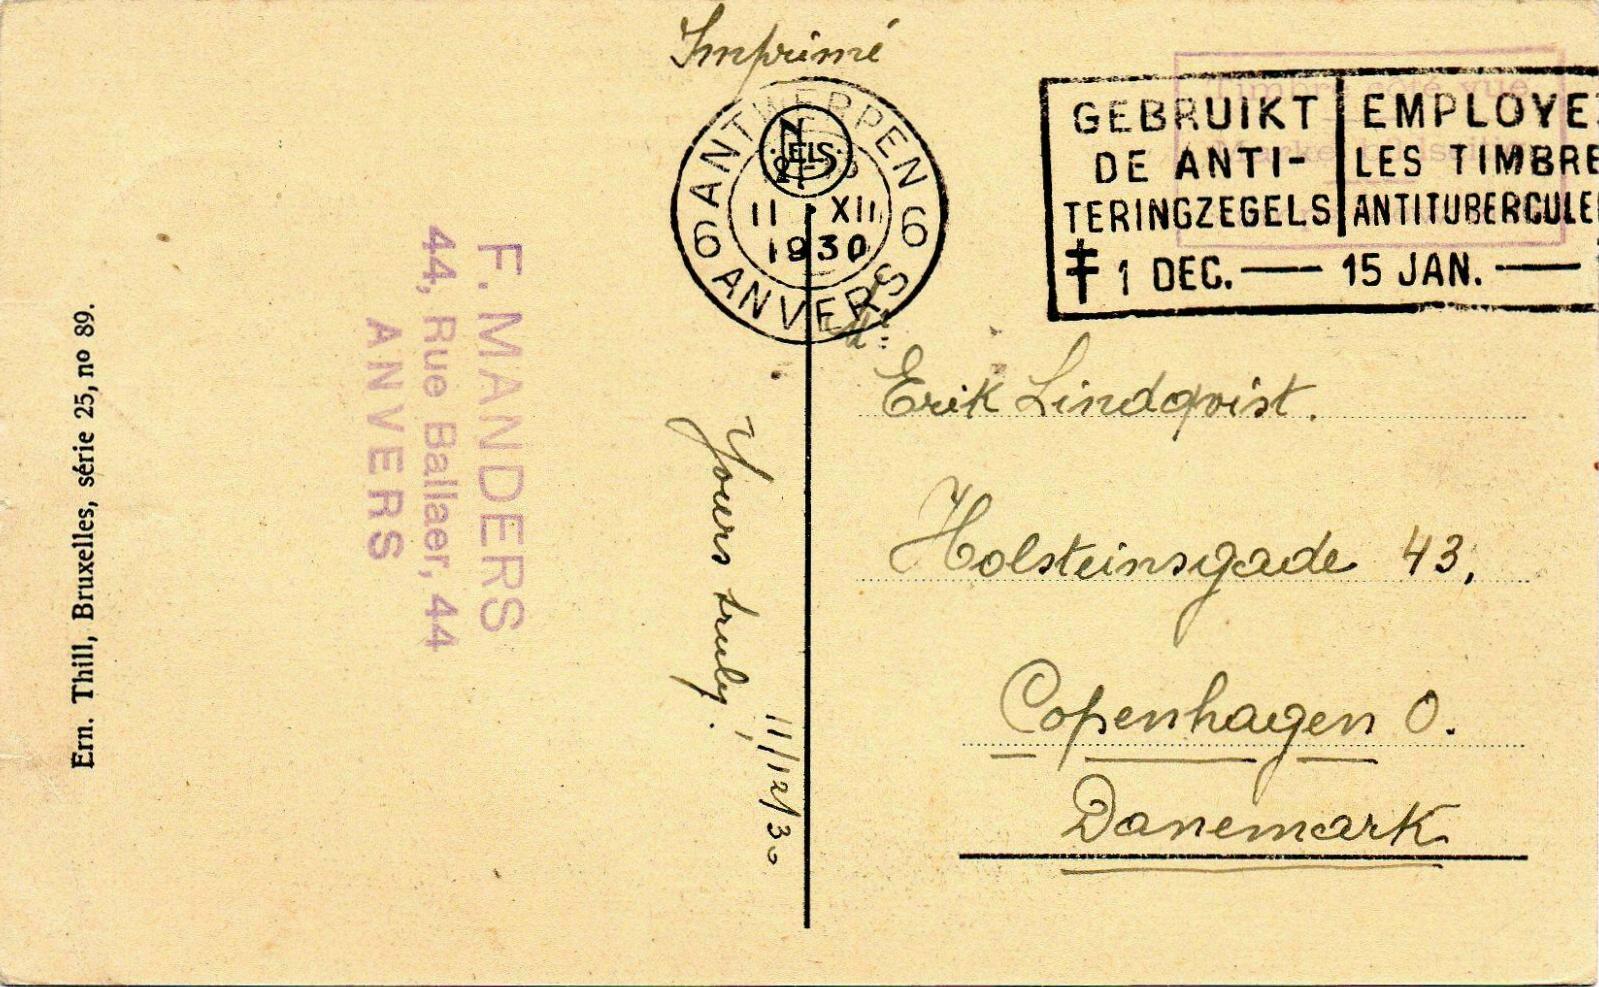 Imprimé
ANTWERPEN
NELS
11 XII
1930
6 6
ANVERS
GEBRUIKT
DE ANTI-
TERINGZEGELS
EMPLOYE
LES TIMBRE
ANTITUBERCULE
1 DEC. — 15 JAN. —
Timbre côté vue
Erik Lindqvist.
Holsteinsgade 43,
Copenhagen O.
Danemark
Yours truly.
11/12/30
F. MANDERS
44, Rue Ballaer, 44
ANVERS
Ern. Thill, Bruxelles, série 25, nº 89.